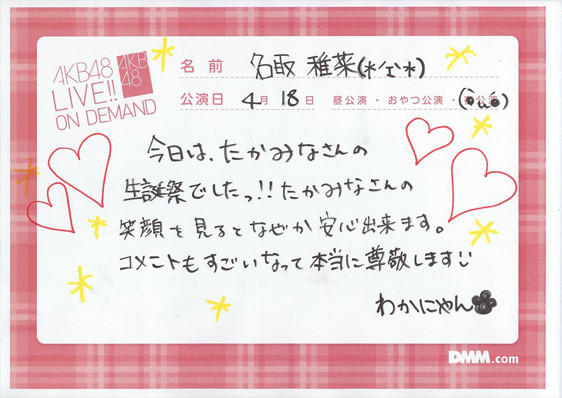 AKB48
LIVE!!
ON DEMAND
AKB
48
名前 名取 稚菜(*/ω\*)
公演日 4月 18日 昼公演・おやつ公演・
今日は、たかみなさんの
生誕祭でしたっ!!たかみなさんの
笑顔を見るとなぜか安心出来ます。
コメントもすごいなって本当に尊敬します
わかにゃん
DMM.com